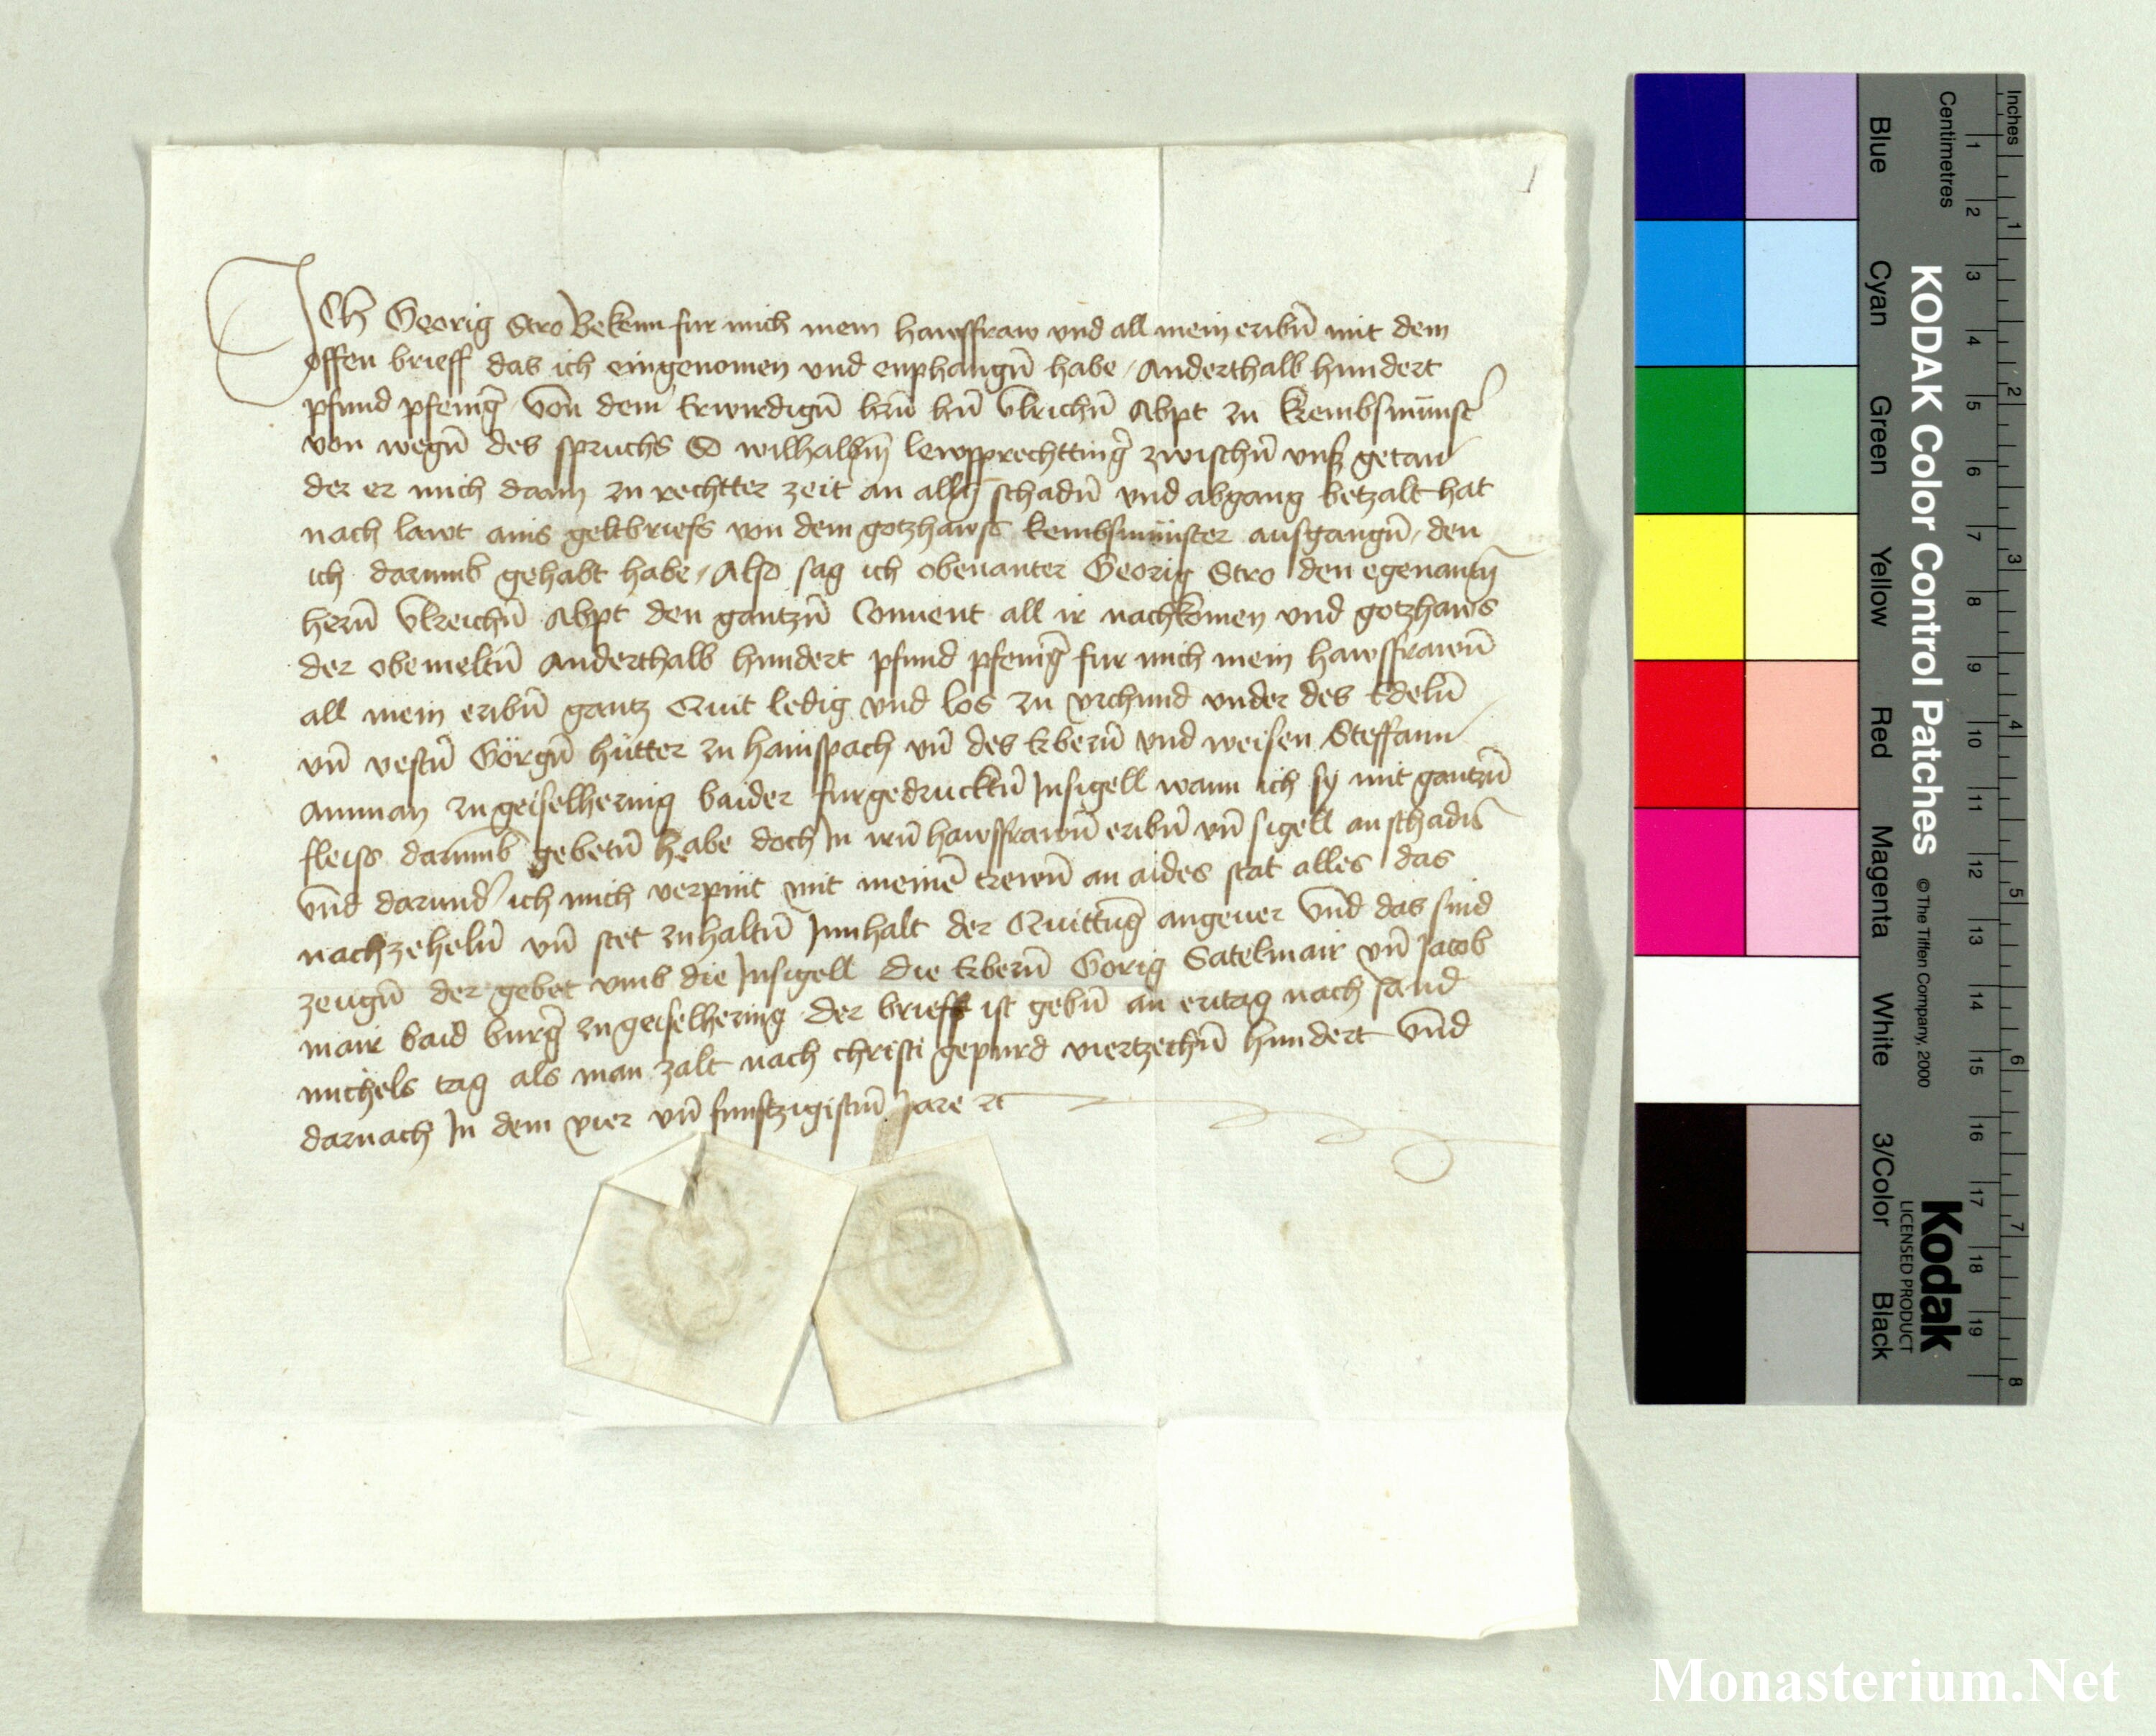 Ich Georig Stro Bekenn fur mich mein hawsfraw vnd all mein eribn̄ mit dem
offen brieff das ich eingenomen vnd enphangn̄ habe / Anderthalb hundert
pfund pfenīg von dem Erwirdign̄ hrn̄ hn̄ Vlrichn̄ Abpt zu Krembsmūnst
von wegn̄ des spruchs So wilhalbm̄ lewpprechtting zwischn̄ vns getan
der er mich dann zu rechtter zeit an alln̄ schadn̄ vnd abgang betzalt hat
nach lawt ains geltbriefs von dem gotzhawss kembsmünster ausgangn̄ / den
ich darumb gehabt habe / Also sag ich obenanter Georig Stro den egenantn̄
hern̄ Vlreichn̄ Abpt den gantzn̄ Conuent all ir nachkomen vnd gotzhaws
der obemeltn̄ Anderthalb hundert pfund pfenīg fur mich mein hawsfrawn̄
all mein eribn̄ gantz Quit ledig vnd los zu vrchund vnder des Edeln̄
vn̄ vestn̄ Görgn̄ hütter zu hainspach vn̄ des Erbern̄ vnd weisen Steffann
Amman zu geiselhering baider furgedrucktn̄ Insigell wann ich sy mit gantzn̄
fleiss darumb gebetn̄ habe doch In irn̄ hawsfrawn̄ eribn̄ vn̄ sigell an schadn̄
Vnd darund ich mich verpint mit meinē trewn̄ an aides stat alles das
nachzeheln̄ vn̄ stet zuhaltn̄ Innhalt der Quittūg angeuer Vnd das sind
zeugn̄ der gebet vmb die Insigell die Erbern̄ Gorig Satelmair vn̄ Jacob
mair baid burg zu geiselhering der brieff ist gebn̄ an eritag nach sand
michels tag als man zalt nach christi gepurd viertzechn̄ hundert Vnd
darnach In dem vier vn̄ funftzigistn̄ Jare
Inches
Centimetres
KODAK Color Control Patches © The Tiffen Company, 2000
Kodak
LICENSED PRODUCT
Blue Cyan Green Yellow Red Magenta White 3/Color Black
1 2 3 4 5 6 7 8 9 10 11 12 13 14 15 16 17 18 19
1 2 3 4 5 6 7 8
Monasterium.Net